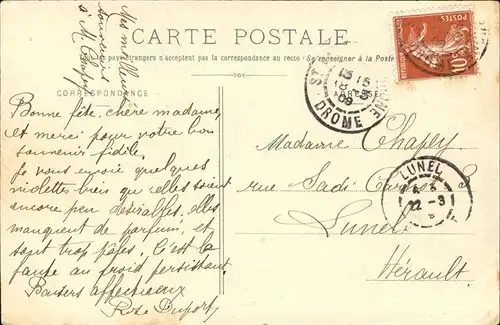 Mes meilleurs
souvenirs
à M. Chapey
CARTE POSTALE
pays étrangers n'acceptent pas la correspondance au recto (Se renseigner à la Poste
CORRESPONDANCE
ADRESSE
Bonne fête, chère madame,
et merci pour votre bon
souvenir fidèle.
Je vous envoie quelques
violettes bien qu'elles soient
encore peu désirables. Elles
manquent de parfum, et
sont trop pâles. C'est la
faute au froid persistant.
Baisers affectueux
Rose Duport
POSTES
10
REPUBLIQUE FRANÇAISE
DROME
09
Madame Chapey
rue Sadi Carnot 3
Lunel
Hérault
LUNEL
22 -3